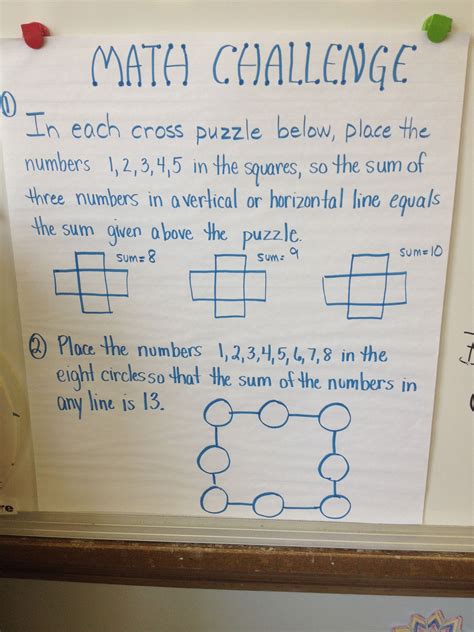 MATH CHALLENGE
① In each cross puzzle below, place the
numbers 1,2,3,4,5 in the squares, so the sum of
three numbers in a vertical or horizontal line equals
the sum given above the puzzle.
sum=8 sum=9 sum=10
② Place the numbers 1,2,3,4,5,6,7,8 in the
eight circles so that the sum of the numbers in
any line is 13.
re